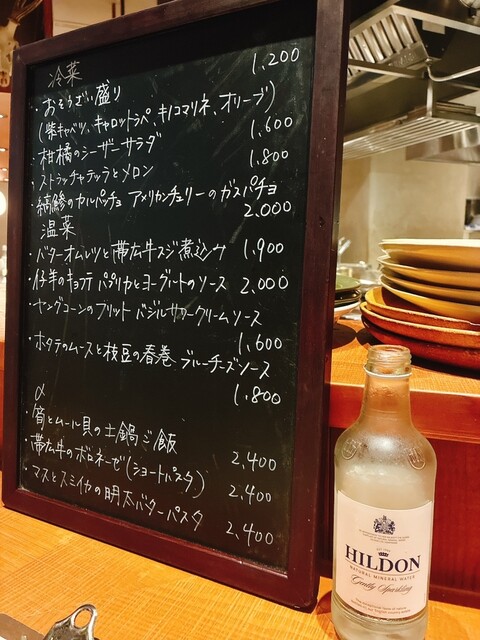 冷菜
・おそうざい盛り 1,200
(紫キャベツ、キャロットラペ、キノコマリネ、オリーブ)
・柑橘のシーザーサラダ 1,600
・ストラッチャテッラとメロン 1,800
・縞鯵のカルパッチョ アメリカンチェリーのガスパチョ
2,000
温菜
・バターオムレツと帯広牛スジ煮込み 1,900
・仔羊のキョフテ パプリカとヨーグルトのソース 2,000
・ヤングコーンのフリット バジルサワークリームソース
1,600
・ホタテのムースと枝豆の春巻 ブルーチーズソース
1,800
α
・筍とムール貝の土鍋ご飯 2,400
・帯広牛のボロネーゼ(ショートパスタ) 2,400
・マスとスミイカの明太バターパスタ 2,400
HILDON
NATURAL MINERAL WATER
Gently Sparkling